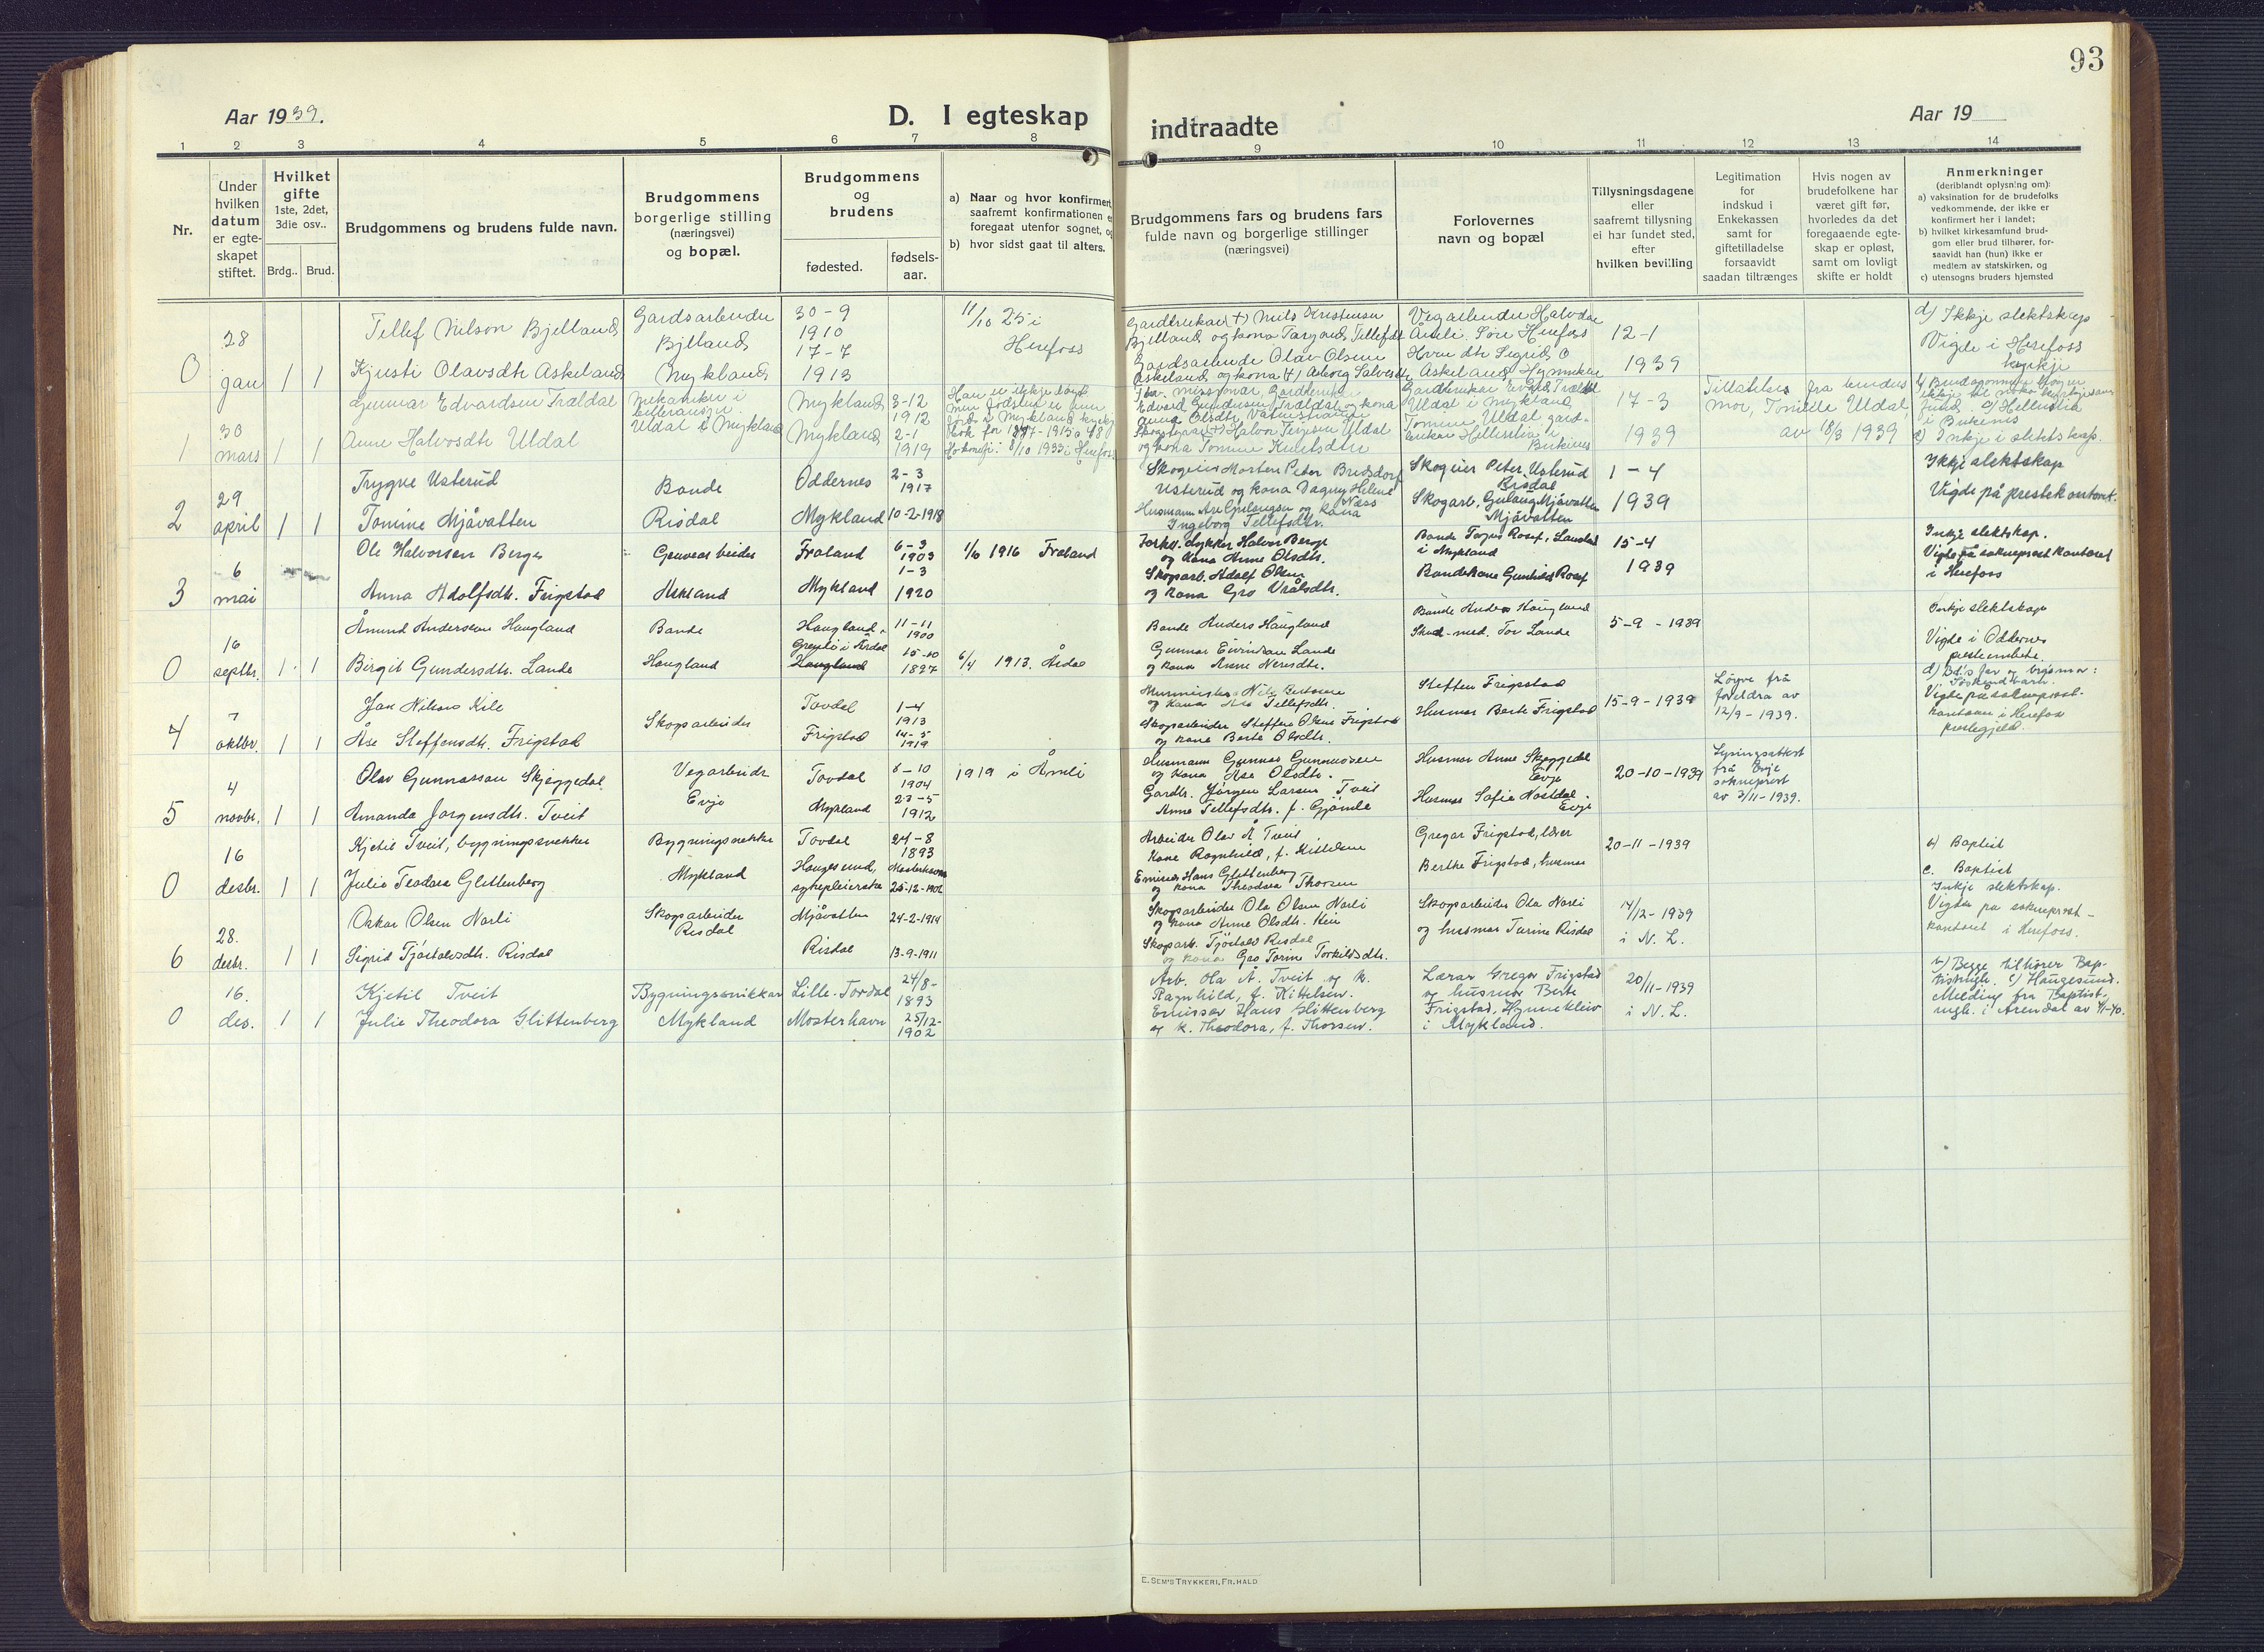 93
Aar 1939.
D. I egteskap
indtraadte
Aar 19
1 2 3 4 5 6 7 8 9 10 11 12 13 14
Nr.
Under
hvilken
datum
er egte-
skapet
stiftet.
Hvilket
gifte
1ste, 2det,
3die osv..
Brdg.. Brud.
Brudgommens og brudens fulde navn.
Brudgommens
borgerlige stilling
(næringsvei)
og bopæl.
Brudgommens
og
brudens
fødested.
fødsels-
aar.
a) Naar og hvor konfirmert,
saafremt konfirmationen
foregaat utenfor sognet,
b) hvor sidst gaat til alters.
Brudgommens fars og brudens fars
fulde navn og borgerlige stillinger
(næringsvei)
Forlovernes
navn og bopæl
Tillysningsdagene
eller
saafremt tillysning
ei har fundet sted,
efter
hvilken bevilling
Legitimation
for
indskud i
Enkekassen
samt for
giftetilladelse
forsaavidt
saadan tiltrænges
Hvis nogen av
brudefolkene har
været gift før,
hvorledes da det
foregaaende egte-
skap er opløst,
samt om lovligt
skifte er holdt
Anmerkninger
(deriblandt oplysning om):
a) vaksination for de brudefolks
vedkommende, der ikke er
konfirmert her i landet;
b) hvilket kirkesamfund brud-
gom eller brud tilhører, for-
saavidt han (hun) ikke er
medlem av statskirken, og
c) utensogns bruders hjemsted
0
28
jan
1 1
Tellef Nilson Bjelland
Kjusti Olavsdtr Askeland
Gardsarbeider
Bjelland
Mykland
30-9
1910
17-7
1913
11/10 25 i
Herefoss
Gardbrukar (+) Nils Kristensen
Bjelland og kona Targjerd Tellefsdtr
Gardsarbeide Olav Olsen
Askeland og kona (+) Asborg Salvesdtr
Vegarbeider Halvdan
Åmli. Søre Herefoss
Hvm dtr Sigrid O
Askeland
12-1
1939
d) Ikkje slektskap
Vigde i Herefoss
kyrkje
1
30
mars
1 1
Gunnar Edvardsen Trældal
Anne Halvorsdtr Uldal
Mekaniker i
Uldal i Mykland
Mykland
Mykland
3-12
1912
2-1
1919
Han er ikkje døypt
men fødselen er inn
førd i Mykland kyrkje
bok for 1887-1915 s 48
Ho konf: 8/10 1933 i Herefoss
Edvard Gundersen Trældal og kona
Anna Olsdtr,
(+) Halvor Terjesen Uldal
og kona Tomine Knutsdtr
Gardbrukar Edvard Trældal
Uldal i Mykland
Tomine Uldal, gard-
brukar Hellerslia i
Birkenes
17-3
1939
Tillatelse fra brudens
mor, Tomine Uldal
av 18/3 1939
b) Brudgommen høyrer
ikkje til noko kyrkjesam
fund. c) Hellerslia
i Birkenes
d) Inkje i slektskap.
2
29
april
1 1
Trygve Usterud
Tomine Mjåvatten
Bonde
Risdal
Oddernes
Mykland
2-3
1917
10-2-1918
Skogeier Morten Peter Bredsdorf
Usterud og kona Dagny Helene
Næss
Husmann Are Gjulaugsen og kona
Ingeborg Tellefsdtr.
Skogeier Peter Usterud
Risdal
Skogarb. Gulaug Mjåvatten
Mjåvatten
1-4
1939
Ikkje slektskap
Vigde på prestekontoret.
3
6
mai
Ole Halvorsen Berge
Anna Adolfsdtr. Frigstad
Gruvearbeider
Askland
Froland
Mykland
6-3
1903
1-3
1920
1/10 1916 Froland
Halvor Berge
og kona Anne Olsdtr.
Skogarb. Adolf Olsen
og kona Gro Vrålsdtr.
Bonde Tarjus Rosef, Landal
i Mykland
Bondekone Gunhild Rosef
15-4
1939
Inkje slektskap.
Vigde på sokneprestkontoret
i Herefoss
0
16
septbr.
1 1
Åmund Andersson Haugland
Birgit Gundersdtr. Lande
Bonde
Haugland
Haugland
i Årdal
Haugland
11-11
1900
15-10
1897
6/4 1913. Årdal
Bonde Anders Haugland
Gunnar Eivindson Lande
og kona Anne Neresdtr.
Bonde Anders Haugland
Tov Lande
5-9-1939
Inkje slektskap
Vigde i Oddernes
presteembete
4
7
oktbr.
1 1
Jon Nilsen Kile
Åse Steffensdtr. Frigstad
Skogsarbeider
Tovdal
Frigstad
1-4
1913
14-5
1919
Nils Bertsson
og kona Åse Tellefsdtr.
Skogsarbeider Steffen Olsen Frigstad
og kona Berte Olsdtr.
Steffen Frigstad
Husmor Berte Frigstad
15-9-1939
Løyve frå
foreldra av
12/9-1939.
d) Bd's far og br's mor:
Søskendbarn.
Vigde på sokneprest-
kontoret i Herefoss
prestegjeld.
5
4
novbr.
1 1
Olav Gunnarsson Skjeggedal
Amanda Jørgensdtr. Tveit
Vegarbeidr
Evje
Tovdal
Mykland
8-10
1904
23-5
1912
1919 i Åmli
Husmann Gunnar Gunnarsen
og kona Åse Olsdtr.
Gardbr. Jørgen Larsen Tveit
Anne Tellefsdtr. f. Gjømle
Husmor Anne Skjeggedal
Evje
Husmor Sofie Nostdal
Evje
20-10-1939
Lysingsattest
frå Evje
sokneprest
av 3/11-1939.
0
16
desbr.
1 1
Kjetil Tveit, bygningssnekker
Julie Teodora Glettenberg
Bygningssnekke
Mykland
Tovdal
Haugesund,
sykepleierske
24-8
1893
Mosterhavn
25-12-1902
Arbeider Olav Å Tveit
Kone Ragnhild, f. Kittelsen
Emisær Hans Glettenberg
og kona Theodora Thorsen
Gregar Frigstad, lærer
Berthe Frigstad, husmor
20-11-1939
b) Baptist
c. Baptist
6
28.
desbr.
1 1
Oskar Olsen Narli
Sigrid Tjøstolvsdtr. Risdal
Skogsarbeider
Risdal
Mjåvatten
Risdal
24-2-1914
13-9-1911
Skogsarbeider Ola Olsen Narli
og kona Anne Olsdtr. Hein
Skogarb. Tjøstolv Risdal
og kona Gro Torine Torkildsdtr.
Skogsarbeider Ola Narli
og husmor Turine Risdal
14/12-1939
i N. L.
Inkje slektskap.
Vigde på sokneprest-
kontoret i Herefoss.
0
16.
des.
1 1
Kjetil Tveit
Julie Theodora Glittenberg
Bygningssnikkar
Mykland
Lille-Tovdal
Mosterhavn
24/8-
1893
25/12-
1902
Arb. Ola Å. Tveit og k.
Ragnhild, f. Kittelsen.
Emissær Hans Glittenberg
og k. Theodora, f. Thorsen.
Lærar Gregar Frigstad
og husmor Berte
Frigstad, Hynnekleiv
i Mykland.
20/11-1939
i N. L.
b) Begge tilhører Bap-
tistmgh. c) Haugesund.
Melding fra Baptist-
mgh. i Arendal av 4/1-40.
E. SEM'S TRYKKERI, FR.HALD